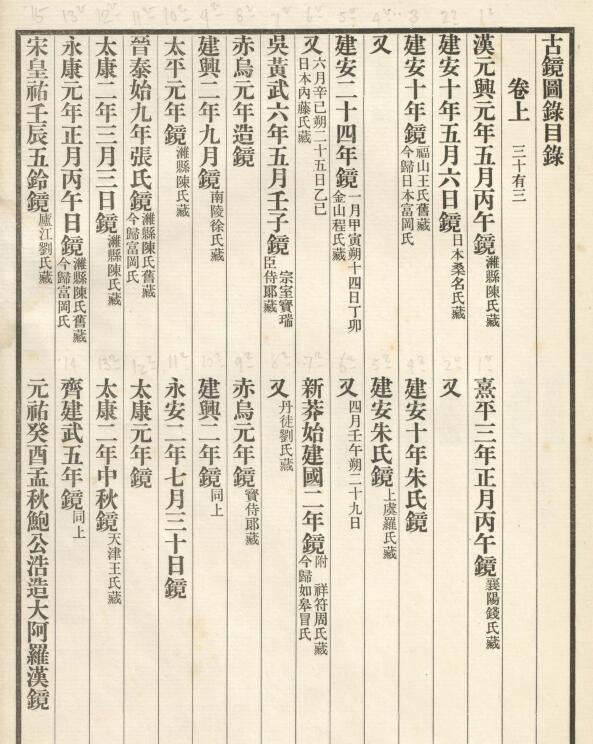 古鏡圖錄目錄
卷上 三十有三
漢元興元年五月丙午鏡 濰縣陳氏藏 熹平三年正月丙午鏡 襄陽錢氏藏
建安十年五月六日鏡 日本桑名氏藏 又
建安十年鏡 福山王氏舊藏今歸日本富岡氏 建安十年朱氏鏡
又 建安朱氏鏡 上虞羅氏藏
建安二十四年鏡 一月甲寅朔十四日丁卯金山程氏藏 又 四月壬午朔二十九日
又 六月辛巳朔二十五日乙巳日本內藤氏藏 新莽始建國二年鏡 附 祥符周氏藏今歸如皋冒氏
吳黃武六年五月壬子鏡 宗室寶瑞臣侍郎藏 又 丹徒劉氏藏
赤烏元年造鏡 赤烏元年鏡 寶侍郎藏
建興二年九月鏡 南陵徐氏藏 建興二年鏡 同上
太平元年鏡 濰縣陳氏藏 永安二年七月三十日鏡
晉泰始九年張氏鏡 濰縣陳氏舊藏今歸富岡氏 太康元年鏡
太康二年三月三日鏡 濰縣陳氏藏 太康二年中秋鏡 天津王氏藏
永康元年正月丙午日鏡 濰縣陳氏舊藏今歸富岡氏 齊建武五年鏡 同上
宋皇祐壬辰五鈴鏡 廬江劉氏藏 元祐癸酉孟秋鮑公浩造大阿羅漢鏡